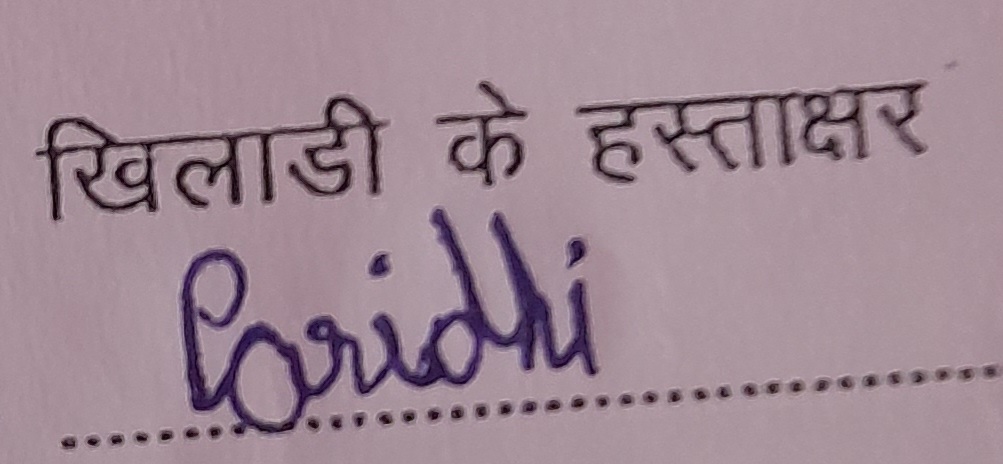 खिलाडी के हस्ताक्षर
Paridhi